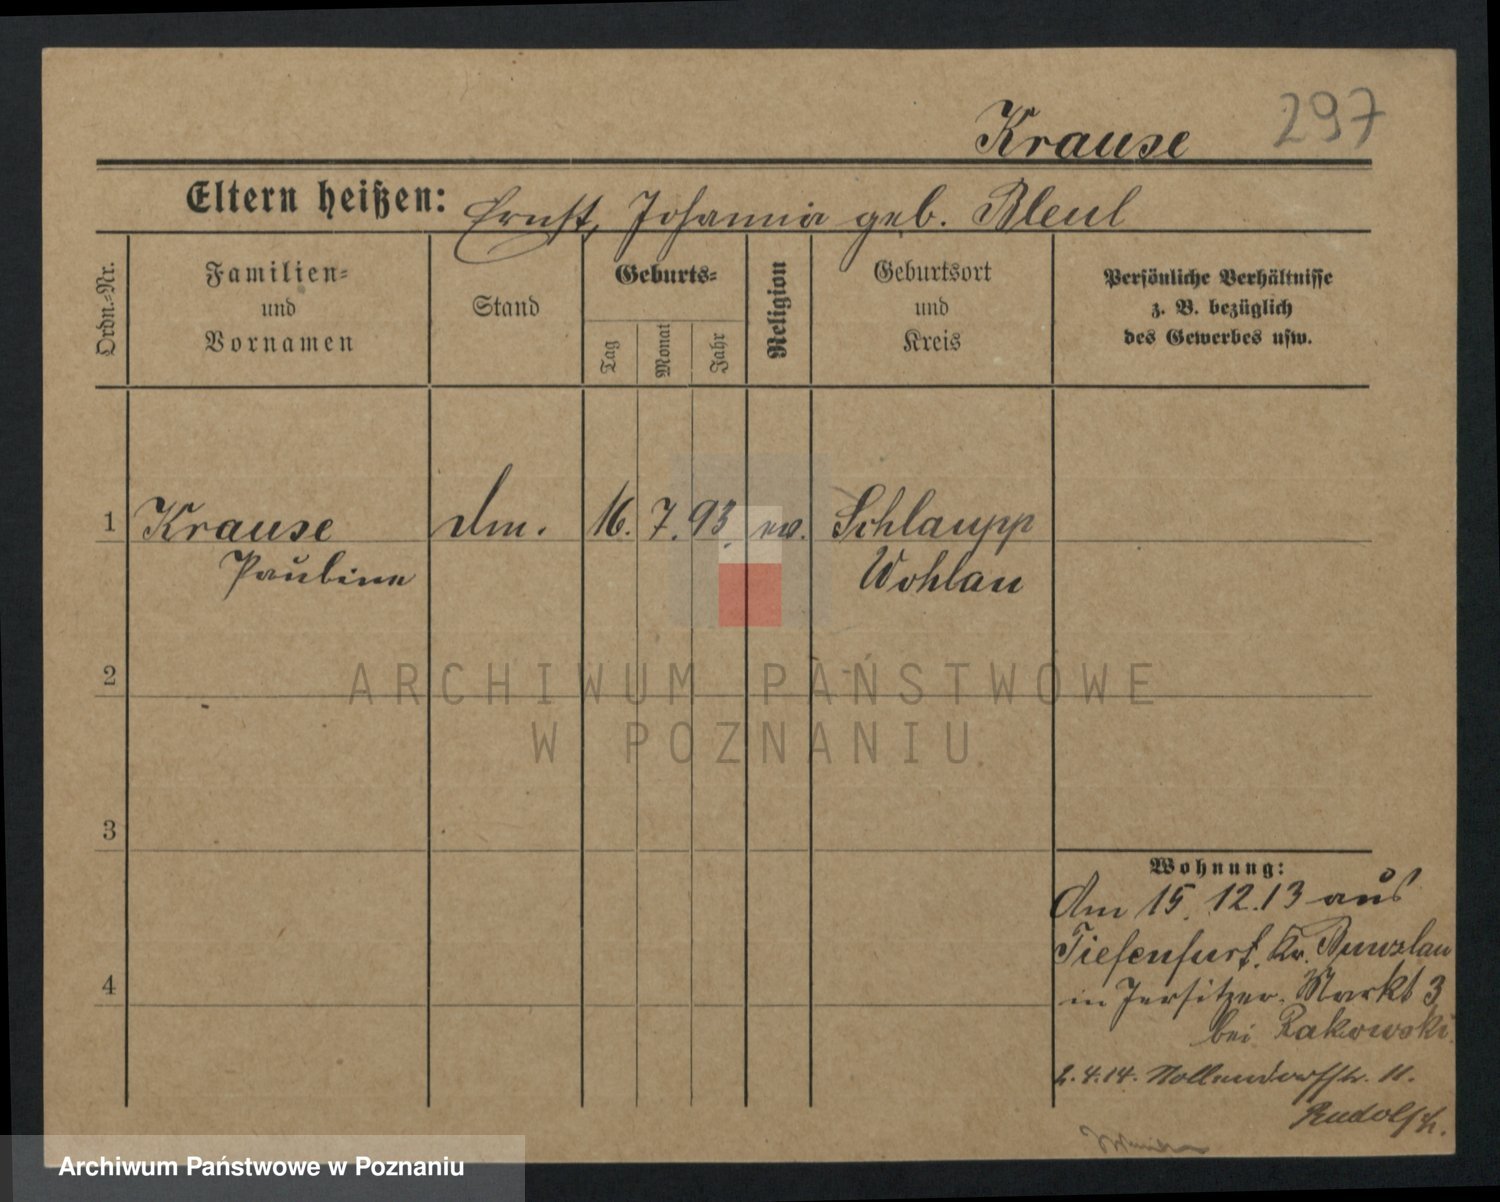 297
Krause
Eltern heißen: Ernst, Johanna geb. Bleul
Ordn.=Nr.
Familien=
und
Vornamen
Stand
Geburts=
Tag
Monat
Jahr
Religion
Geburtsort
und
Kreis
Persönliche Verhältnisse
z. B. bezüglich
des Gewerbes usw.
1 Krause dm. 16. 7. 93. ev. Schlaupp
Pauline Wohlau
2
ARCHIWUM PAŃSTWOWE
W POZNANIU
3
Wohnung:
Am 15. 12. 13 aus
Tiefenfurt, Kr. Bunzlau
in Jersitzer. Markt 3
bei Rakowski
4
2.4.14. Nollendorfstr. 11.
Archiwum Państwowe w Poznaniu